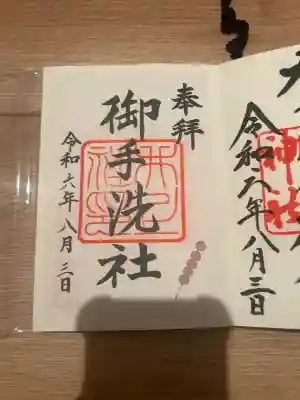 奉拝
御手洗社
令和六年八月三日
令和六年八月三日
神社